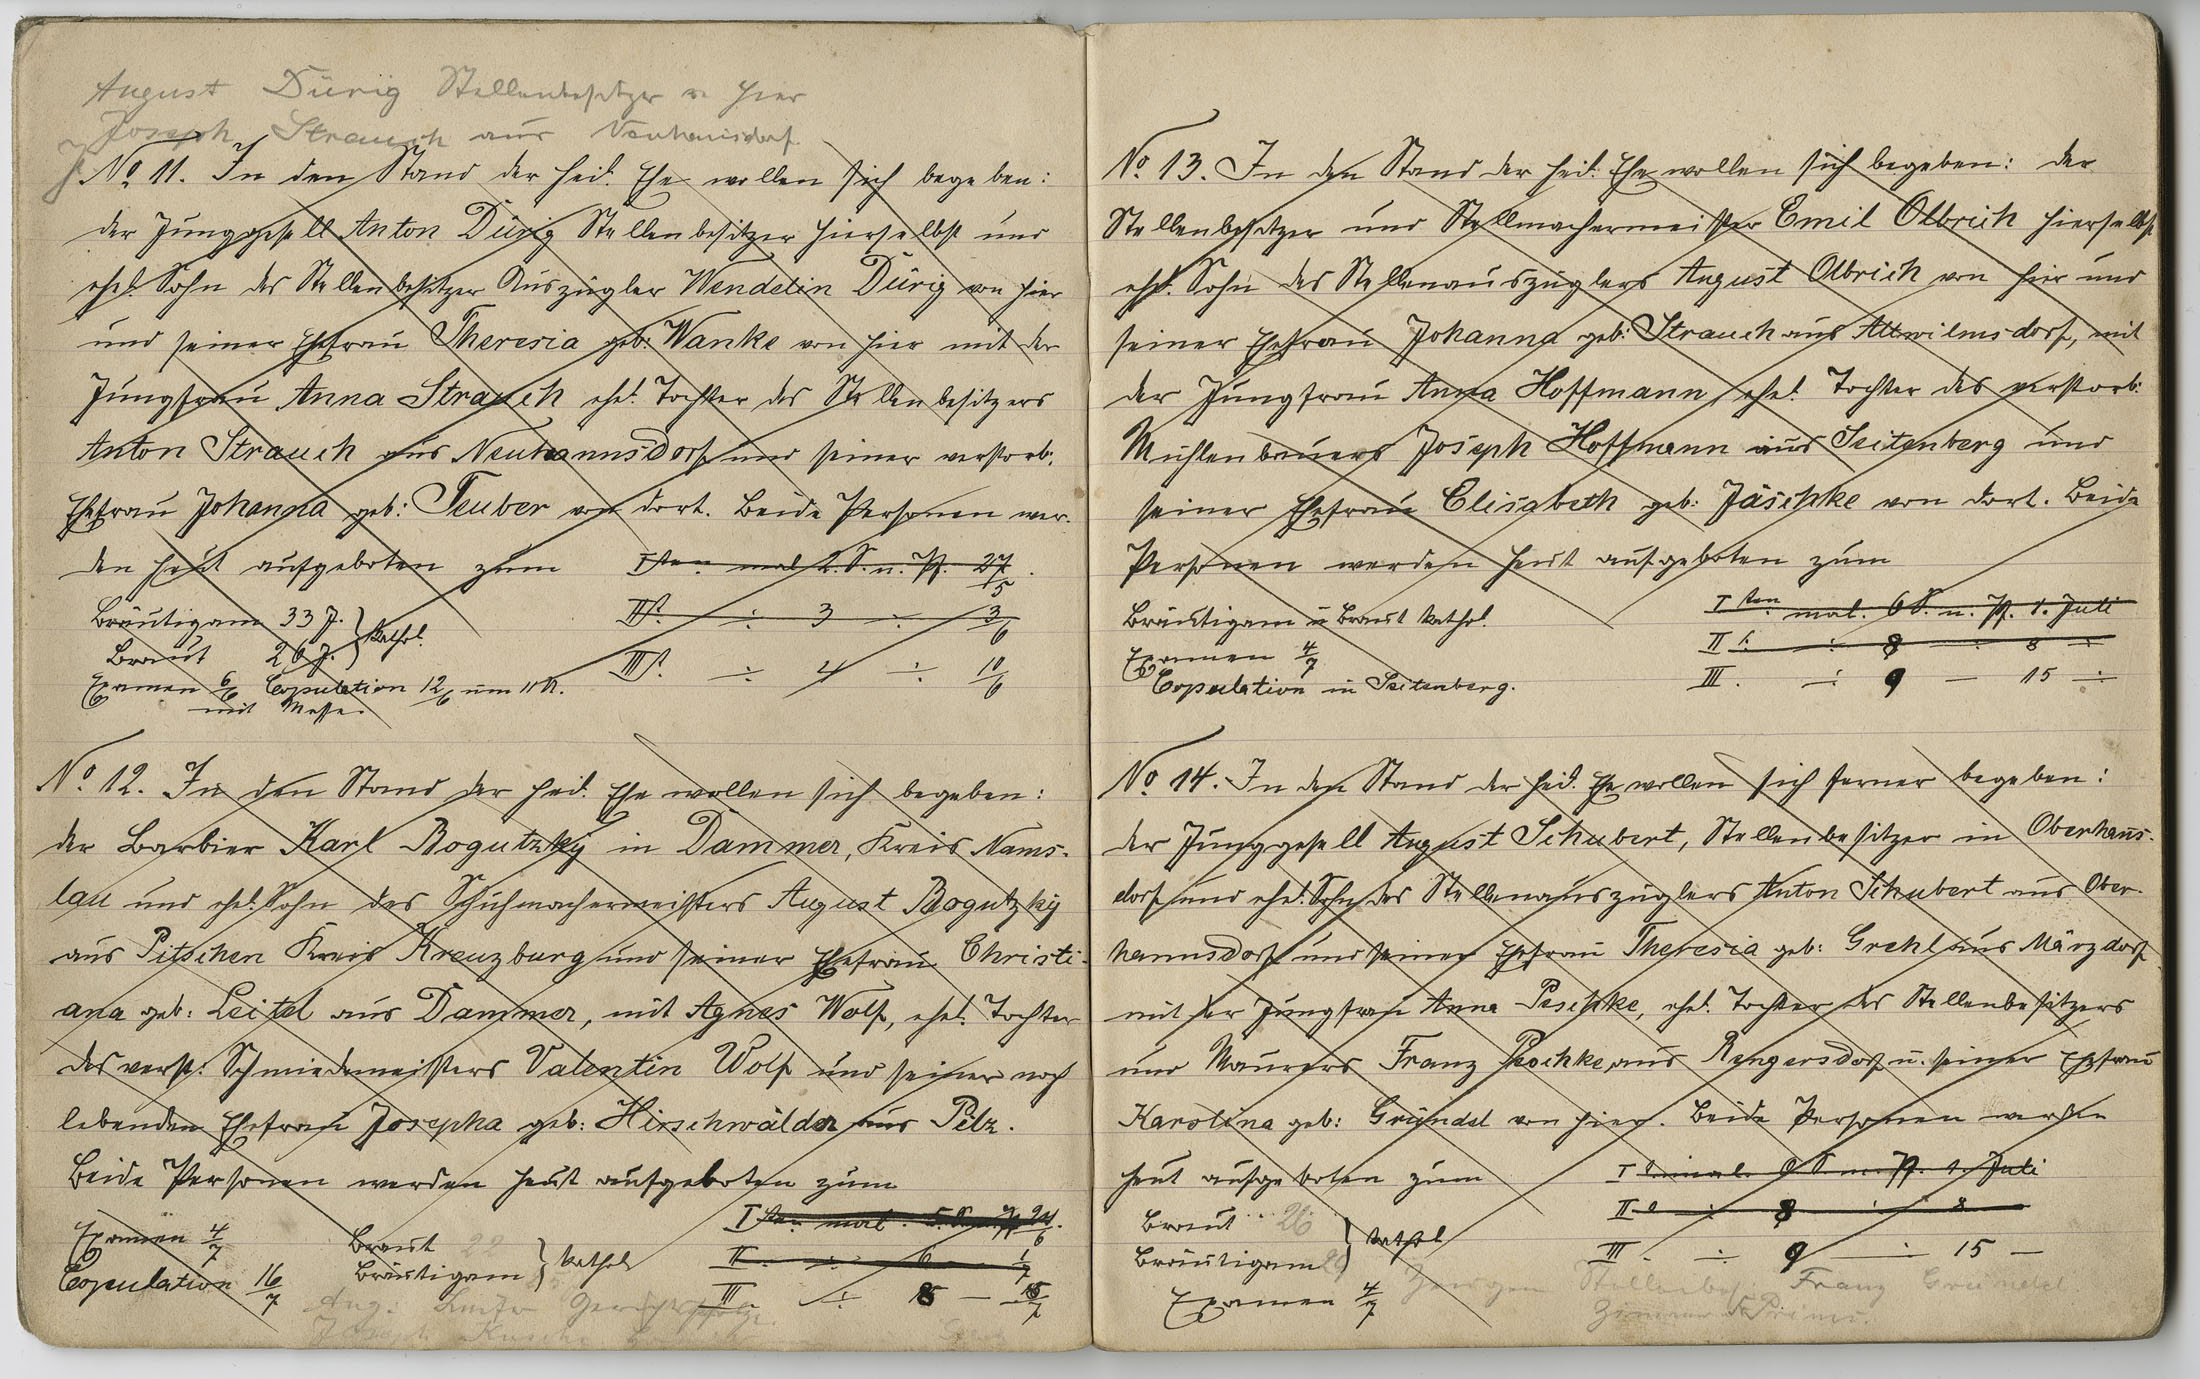 August Dürig Stellenbesitzer v. hier
Joseph Strauch aus Neuhannsdorf
No 11. In den Stand der heil. Ehe wollen sich begeben:
der Junggesell Anton Dürig Stellenbesitzer hierselbst und
ehel. Sohn des Stellenbesitzer Auszügler Wendelin Dürig von hier
und seiner Ehefrau Theresia geb: Wanke von hier mit der
Jungfrau Anna Strauch ehel. Tochter des Stellenbesitzers
Anton Strauch aus Neuhannsdorf und seiner verstorb.
Ehefrau Johanna geb: Teuber von dort. Beide Personen wer-
den heut aufgeboten zum Iten mal 2. S. n. Pf. 27/5.
Bräutigam 33 J. } kathol. IIt. ÷ 3 ÷ 3/6
Braut 26 J.
Examen 6/6 Copulation 12/6 um 11 h. IIIt. ÷ 4 ÷ 10/6
mit Messe.
No 12. In den Stand der heil. Ehe wollen sich begeben:
der Barbier Karl Bogutzky in Dammer, Kreis Nams-
lau und ehel. Sohn des Schuhmachermeisters August Bogutzky
aus Pitschen Kreis Kreuzburg und seiner Ehefrau Christi-
ana geb: Leitel aus Dammer, mit Agnes Wolf, ehel. Tochter
des verst: Schmiedemeisters Valentin Wolf und seiner noch
lebenden Ehefrau Josepha geb: Hirschwälder aus Pilz.
Beide Personen werden heut aufgeboten zum
Iten mal. 5. S. n. Pf 24/6.
Examen 4/7 Braut 22 } kathol II. ÷ 6 — 1/7
Copulation 16/7 Bräutigam III ÷ 8 — 15/7
Aug:
Joseph
No. 13. In den Stand der heil. Ehe wollen sich begeben: der
Stellenbesitzer und Stellmachermeister Emil Olbrich hierselbst
ehel. Sohn des Stellenauszüglers August Olbrich von hier und
seiner Ehefrau Johanna geb: Strauch aus Altwilmsdorf, mit
der Jungfrau Anna Hoffmann, ehel. Tochter des verstorb.
Mühlenbauers Joseph Hoffmann aus Seitenberg und
seiner Ehefrau Elisabeth geb: Jäschke von dort. Beide
Personen werden heut aufgeboten zum
Bräutigam u Braut kathol. I ten mal. 6 S. n. Pf. 1. Juli
Examen 4/7 II t. ÷ 8 ÷ 8 ÷
Copulation in Seitenberg. III. ÷ 9 — 15 ÷
No 14. In den Stand der heil. Ehe wollen sich ferner begeben:
der Junggesell August Schubert, Stellenbesitzer in Oberhanns-
dorf und ehel. Sohn des Stellenauszüglers Anton Schubert aus Ober-
hannsdorf und seiner Ehefrau Theresia geb: Grehl aus Märzdorf
mit der Jungfrau Anna Peschke, ehel. Tochter des Stellenbesitzers
und Maurers Franz Peschke aus Rengersdorf u. seiner Ehefrau
Karolina geb: Gründel von hier. Beide Personen werden
heut aufgeboten zum I t. mal. 6 S. n. Pf. 1. Juli
Braut 26 } kathol II t ÷ 8 ÷ 8
Bräutigam 29 III. ÷ 9 ÷ 15 —
Examen 4/7 Zeugen Stellenbes: Franz Gründel